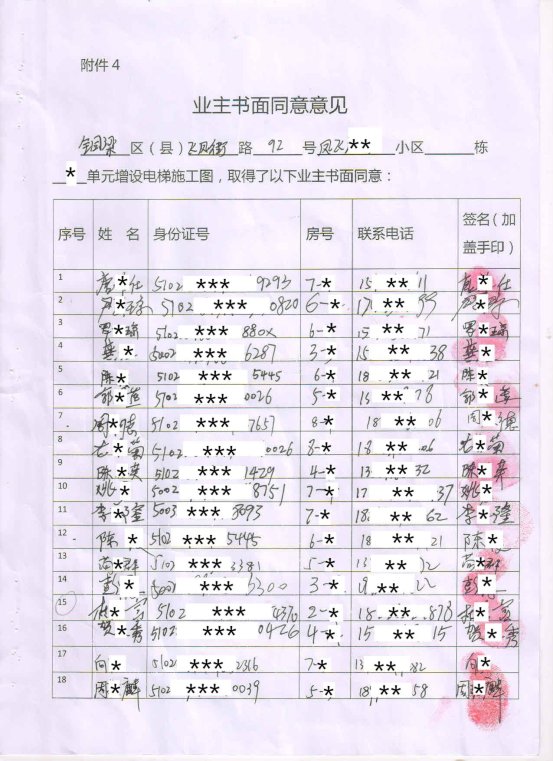 附件 4
业主书面同意意见
铜梁 区（县）飞凤街 路 92 号 凤飞** 小区 栋
* 单元增设电梯施工图，取得了以下业主书面同意：
序号 姓 名 身份证号 房号 联系电话 签名（加盖手印）
1 唐*仕 5102 *** 9293 7-* 15 ** 11 唐*仕
2 5102 *** 0820 6-* 17 ** 99
3 罗*瑜 5102 *** 880X 6-* 15 ** 71 罗*瑜
4 龚* 5002 *** 6287 3-* 15 ** 38 龚*
5 陈* 5102 *** 5445 6-* 18 ** 21 陈*
6 郭* 5102 *** 0026 5-* 15 ** 78 郭*
7 周*德 5102 *** 7657 8-* 18 ** 06 周*德
8 *菊 5102 *** 0026 8-* 18 ** 06 *菊
9 陈*英 5102 *** 1429 4-* 13 ** 32 陈*英
10 姚* 5002 *** 8751 7-* 17 ** 37 姚*
11 李* 5003 *** 3693 7-* 18 ** 62 李*
12 陈* 5102 *** 5445 6-* 18 ** 21 陈*
13 *群 5102 *** 3381 5-* 13 ** 32 *群
14 彭* 5001 *** 5300 3-* ** 22 彭*
15 杜* 5102 *** 4370 2-* 18 ** 878 杜*
16 贺*秀 5102 *** 0426 4-* 15 ** 15 贺*秀
17 向* 5102 *** 2316 7-* 13 ** 82 向*
18 周*麟 5102 *** 0039 5-* 18 ** 58 周*麟